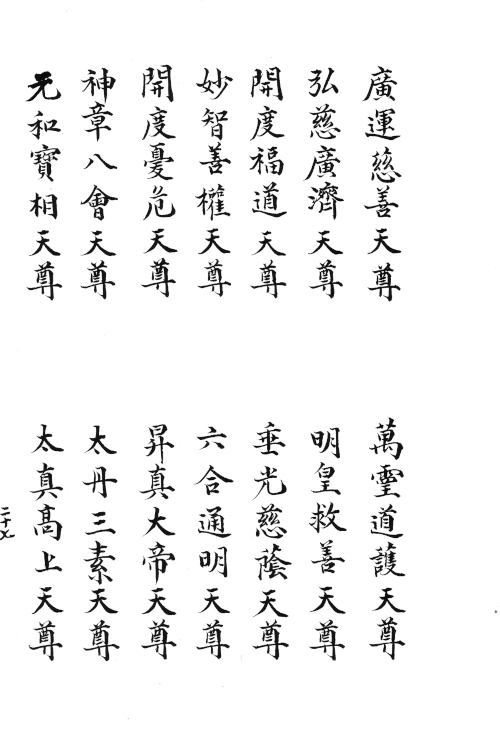 廣運慈善天尊
萬靈道護天尊
弘慈廣濟天尊
明皇救善天尊
開度福道天尊
垂光慈蔭天尊
妙智善權天尊
六合通明天尊
開度憂危天尊
昇真大帝天尊
神章八會天尊
太丹三素天尊
元和寶相天尊
太真高上天尊
二十七